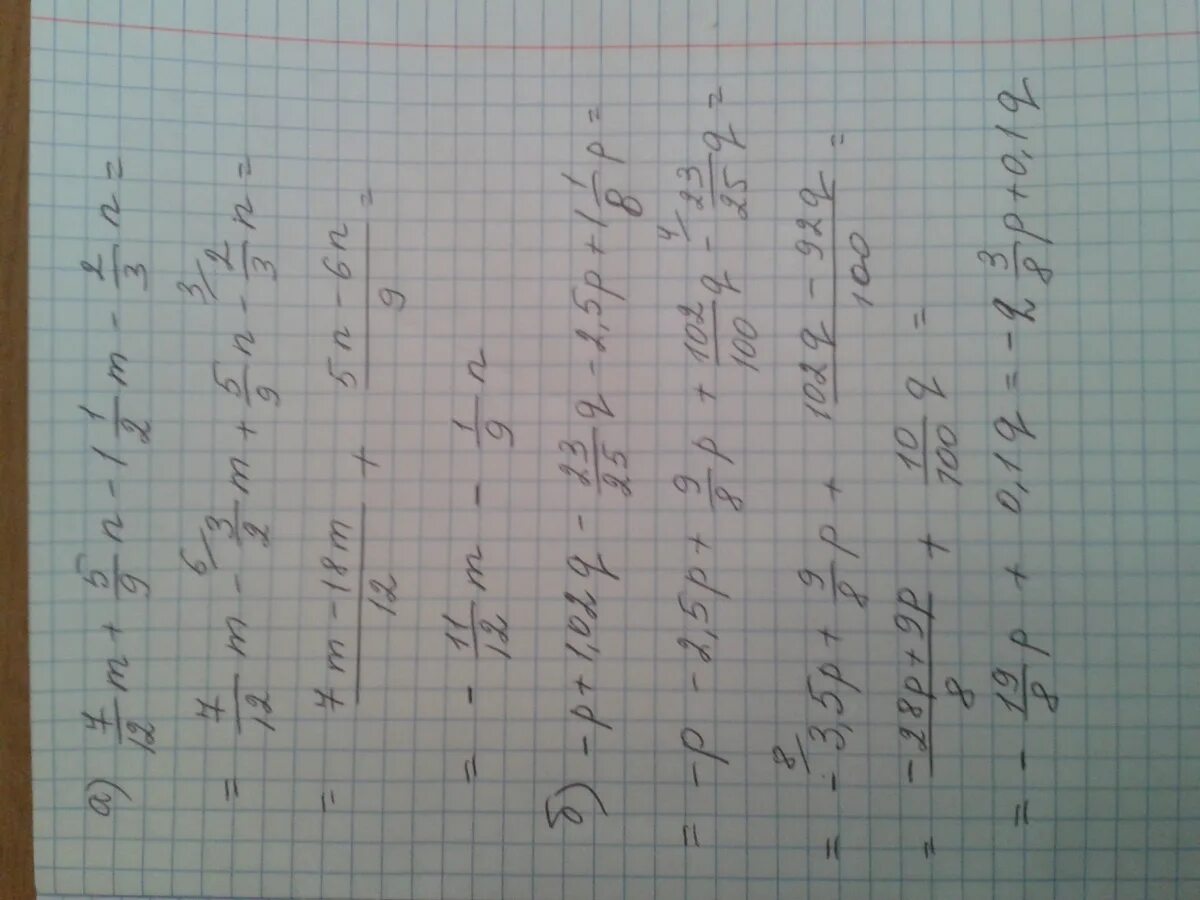 а) 7/12 m + 5/9 n - 1 1/2 m - 2/3 n =
= 7/12 m - 6/ 3/2 m + 5/9 n - 3/ 2/3 n =
= (7m - 18m)/12 + (5n - 6n)/9 =
= - 11/12 m - 1/9 n
б) - p + 1,02q - 23/25 q - 2,5p + 1 1/8 p =
= - p - 2,5p + 9/8 p + 102/100 q - 4/ 23/25 q =
= 8/ - 3,5p + 9/8 p + (102q - 92q)/100 =
= (-28p + 9p)/8 + 10/100 q =
= - 19/8 p + 0,1q = - 2 3/8 p + 0,1q